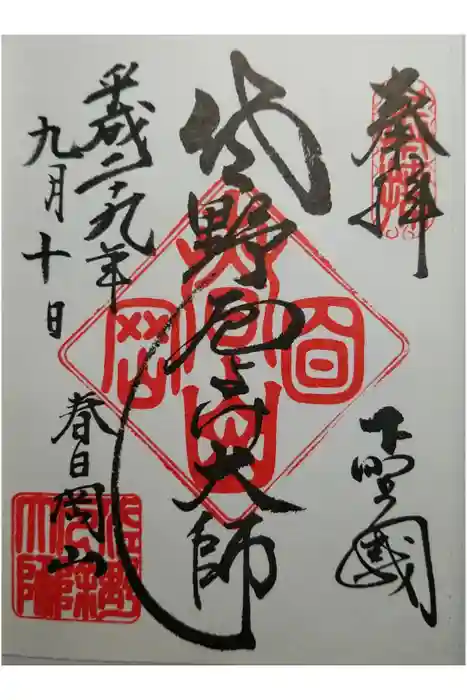 奉拝
下野國
佐野厄よけ大師
平成二十九年
九月十日
春日岡山